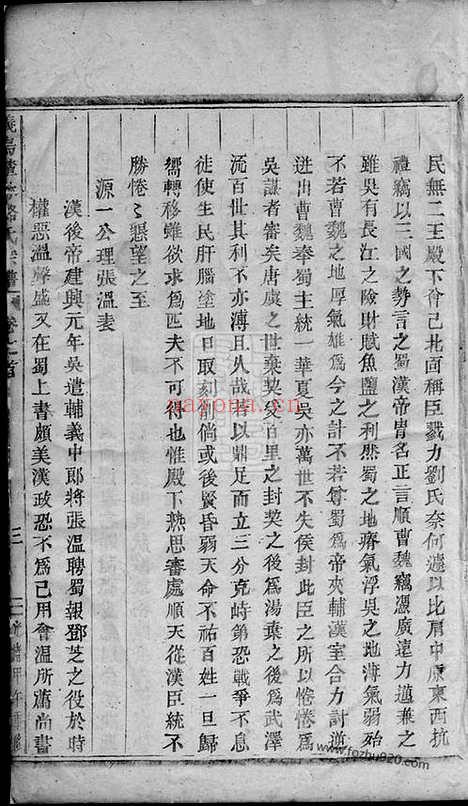 民無二王殿下曾己北面稱臣戮力劉氏奈何遽以比肩中原東西抗
禮竊以三國之勢言之蜀漢帝胄名正言順曹魏竊憑廣遠力邁兼之
雖吳有長江之險財賦魚鹽之利然蜀之地瘠氣浮吳之地薄氣弱殆
不若曹魏之地厚氣雄爲今之計不若尊蜀爲帝夾輔漢室合力討逆
迸出曹魏奉蜀主統一華夏吳亦萬世不失侯封此臣之所以惓惓爲
吳謀者審矣唐虞之世棄契受百里之封契之後爲湯棄之後爲武澤
流百世其利不亦溥且久哉若以鼎足而立三分克峙第恐戰爭不息
徒使生民肝腦塗地日取刻削倘或後賢昏弱天命不祐百姓一旦歸
嚮轉移雖欲求爲匹夫不可得也惟殿下熟思審處順天從漢臣統不
勝惓〻懇望之至
源一公理張溫表
漢後帝建興元年吳遣輔義中郎將張溫聘蜀報鄧芝之役於時
權惡溫聲盛又在蜀上書頗美漢政恐不爲己用會溫所薦尚書
駱氏宗譜
卷之首
三
nayona.cn
www.fozhu920.com